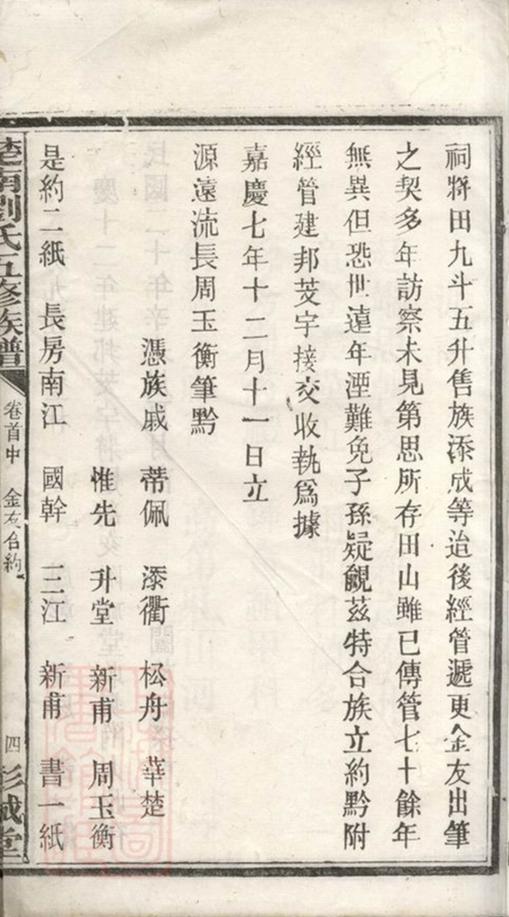 祠將田九斗五升售族添成等迨後經管遞更金友出筆
之契多年訪察未見第思所存田山雖已傳管七十餘年
無異但恐世遠年湮難免子孫疑覦茲特合族立約黔附
經管建邦茭宇接交收執爲據
嘉慶七年十二月十一日立
源遠流長周玉衡筆黔
憑族戚 蒂佩 添衢 松舟 華楚
惟先 升堂 新甫 周玉衡
是約二紙 長房南江 國幹 三江 新甫 書一紙
楚南劉氏五修族譜 卷首中 金友合約 四 彭城堂